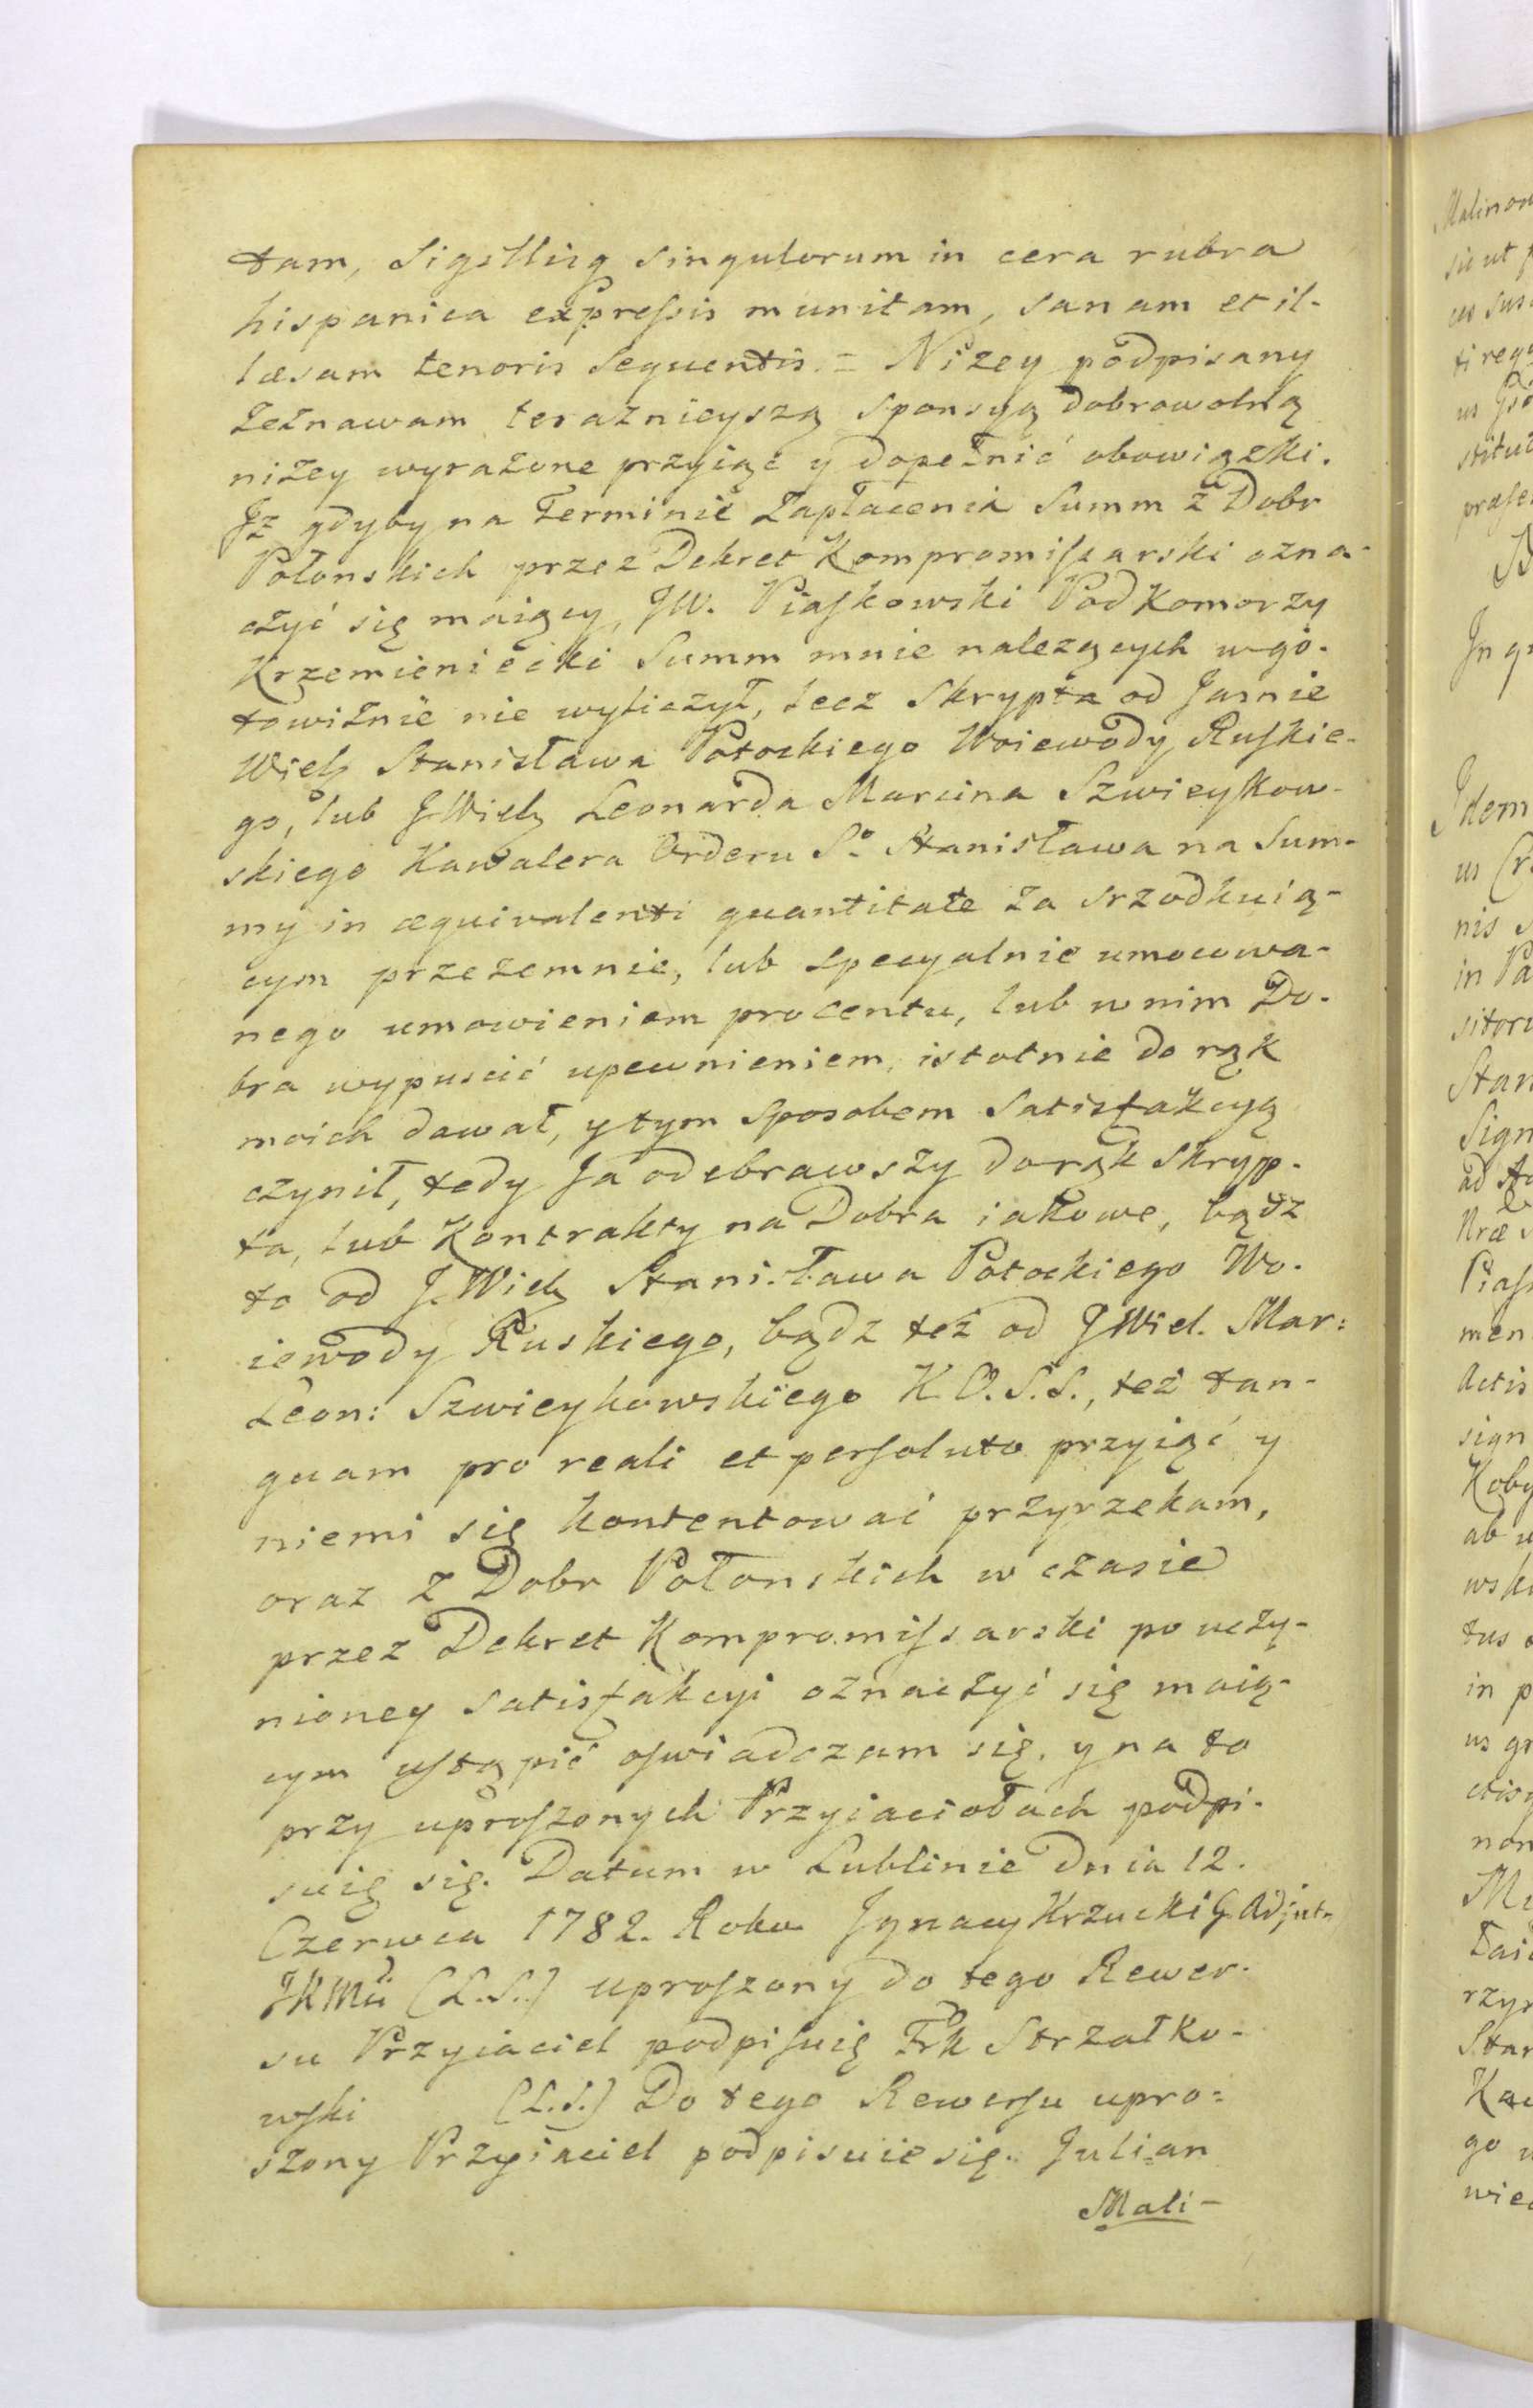 tam, Sigillisq singulorum in cera rubra
hispanica expressis munitam, sanam et il-
læsam tenoris sequentis. = Niżey podpisany
zeznawam teraznieyszą sponsyą dobrowolną
niżey wyrażone przyiąc y dopełnić obowiązki.
Jż gdyby na Terminie Zapłacenia Summ z Dobr
Połonskich przez Dekret Kompromissarski ozna-
czyć się maiący, JW. Piaskowski Podkomorzy
Krzemieniecki Summ mnie nalezących w go-
towiźnie nie wyliczył, lecz Skrypta od Jasnie
Wielg Stanisława Potockiego Woiewody Ruskie-
go, lub J Wielg Leonarda Marcina Szwieykow-
skiego Kawalera Orderu Sº Stanisława na Sum-
my in æquivalenti quantitate za srzodkuią-
cym przezemnie, lub specyalnie umocowa-
nego umowieniem procentu, lub w nim Do-
bra wypuscić upewnieniem, istotnie do rąk
moich dawał, y tym sposobem Satisfakcyą
czynił, tedy Ja odebrawszy do rąk Skryp-
ta, lub Kontrakty na Dobra iakowe, bądz
to od J. Wielg Stanisława Potockiego Wo-
iewody Ruskiego, bądz też od J Wiel. Mar:
Leon: Szwieykowskiego K. O. S. S., też tan-
quam pro reali et persoluto przyiąć y
niemi się kontentować przyrzekam,
oraz z Dobr Połonskich w czasie
przez Dekret Kompromissarski po uczy-
nioney satisfakcyi oznaczyć się maią-
cym ustąpić oswiadczam się, y na to
przy uproszonych Przyiaciołach podpi-
suię się. Datum w Lublinie dnia 12.
Czerwca 1782. Roku Jgnacy Krzucki G. Adjut.
JKMci (L.S.) uproszony do tego Rewer-
su Przyiaciel podpisuię Frk Strzałko-
wski (L.S.) Do tego Rewersu upro-
szony Przyiaciel podpisuie się. Julian
Mali-